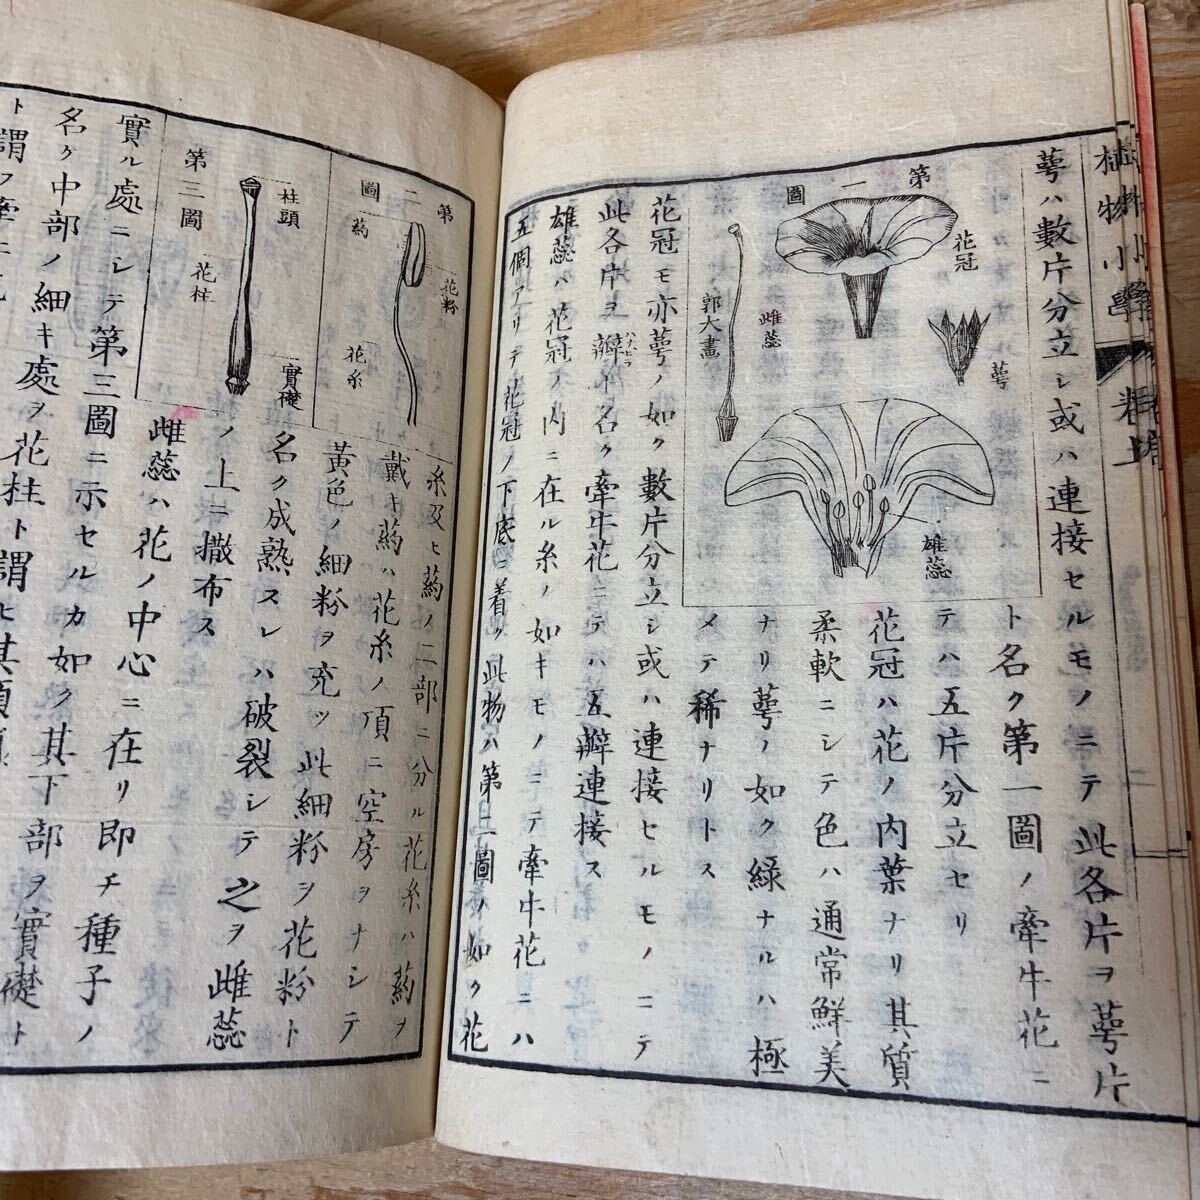 植物小學
卷上
萼ハ數片分立シ或ハ連接セルモノニテ此各片ヲ萼片
ト名ク第一圖ノ牽牛花ニ
テハ五片分立セリ
花冠ハ花ノ内葉ナリ其質
柔軟ニシテ色ハ通常鮮美
ナリ萼ノ如ク緑ナルハ極
メテ稀ナリトス
第一圖
花冠
萼
雌蕊
郭大畫
雄蕊
花冠モ亦萼ノ如ク數片分立シ或ハ連接セルモノニテ
此各片ヲ瓣ト名ク牽牛花ニテハ五瓣連接ス
ハナビラ
雄蕊ハ花冠ノ内ニ在ル糸ノ如キモノニテ牽牛花ニハ
五個アリテ花冠ノ下底ニ着ク此物ハ第二圖ノ如ク花
第二圖
葯
花粉
花糸
糸及ヒ葯ノ二部ニ分ル花糸ハ葯ヲ
戴キ葯ハ花糸ノ頂ニ空房ヲナシテ
黃色ノ細粉ヲ充ツ此細粉ヲ花粉ト
名ク成熟スレハ破裂シテ之ヲ雌蕊
ノ上ニ撒布ス
第三圖
柱頭
花柱
實礎
雌蕊ハ花ノ中心ニ在リ即チ種子ノ
實ル處ニシテ第三圖ニ示セルカ如ク其下部ヲ實礎ト
名ク中部ノ細キ處ヲ花柱ト謂ヒ其頂
ト謂フ牽